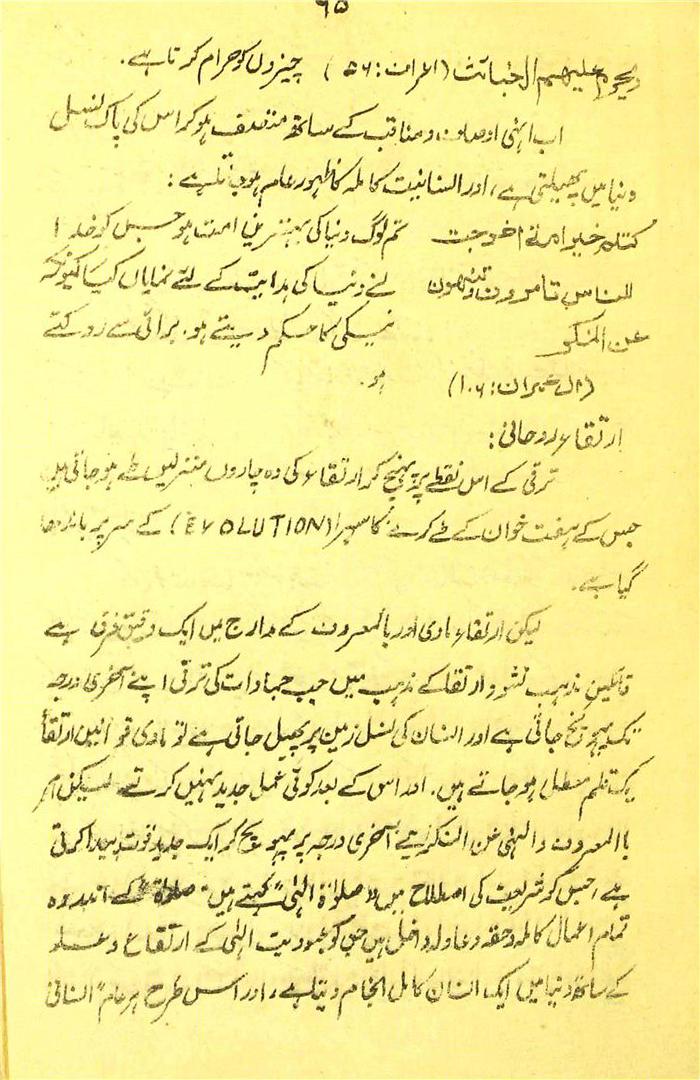 ٩٥
ویحرم علیهم الخبائث (اعراف: ۵۶) چیزوں کو حرام کرتا ہے۔
اب انہی اوصاف و مناقب کے ساتھ متصف ہو کر اس کی پاک نسل
دنیا میں پھیلتی ہے، اور انسانیت کاملہ کا ظہور عام ہو جاتا ہے:
کنتم خیر امة اخرجت تم لوگ دنیا کی بہترین امت ہو جس کو خدا
للناس تامرون وتنهون نے دنیا کی ہدایت کے لئے نمایاں کیا کیونکہ
عن المنکر نیکی کا حکم دیتے ہو۔ برائی سے روکتے
(ال عمران: ۱۰۶) ہو۔
ارتقاء روحانی:
ترقی کے اس نقطے پر پہنچ کر ارتقاء کی وہ چاروں منزلیں طے ہو جاتی ہیں
جس کے ہفت خوان کے طے کرنے کا سہرا (EVOLUTION) کے سر پر باندھا
گیا ہے۔
لیکن ارتقاء مادی اور بالمعروف کے مدارج میں ایک دقیق فرق ہے
قائلین مذہب نشو و ارتقا کے مذہب میں جب جمادات کی ترقی اپنے آخری درجہ
تک پہونچ جاتی ہے اور انسان کی نسل زمین پر پھیل جاتی ہے تو مادی قوانین ارتقأ
یک قلم معطل ہو جاتے ہیں۔ اور اس کے بعد کوئی عمل جدید نہیں کرتے لیکن امر
باالمعروف والنہی عن المنکر اپنے آخری درجہ پر پہونچ کر ایک جدید قوت پیدا کرتی
ہے، جس کو شریعت کی اصطلاح میں "صلوٰة الہٰی" کہتے ہیں۔ صلوٰة کے اندر وہ
تمام اعمال کاملہ و حقہ و عادلہ داخل ہیں جن کو عبودیت الہٰی کے ارتفاع و علو
کے ساتھ دنیا میں ایک انسان کامل انجام دیتا ہے، اور اس طرح ہر عام "انسانی